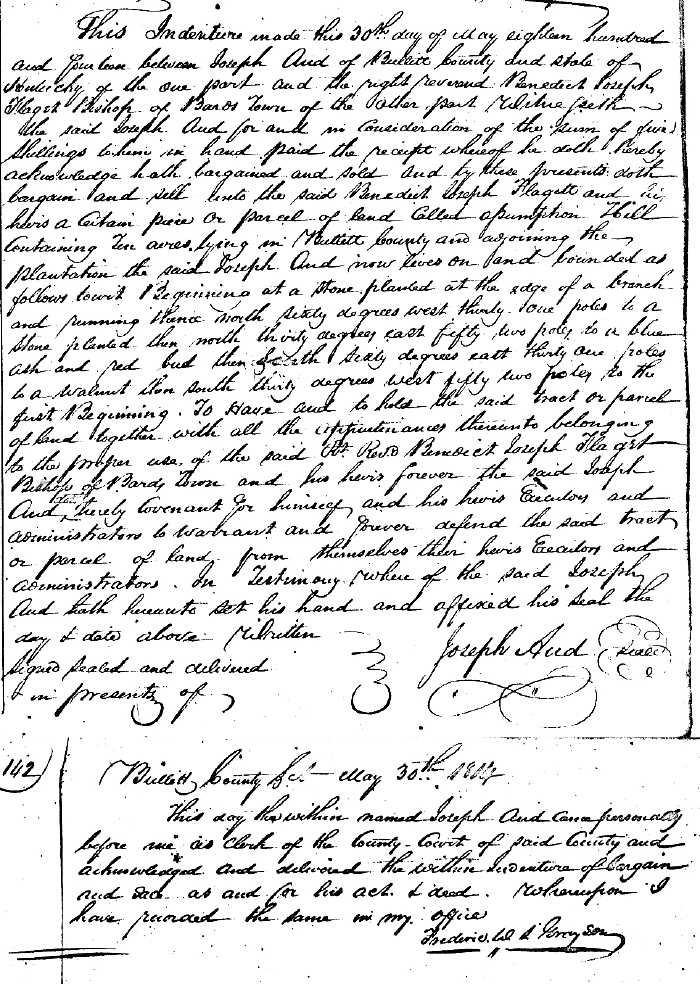 This Indenture made this 30th day of May eighteen hundred
and fourteen between Joseph Aud of Bullitt County and state of
Kentucky of the one part and the right reverend Benedict Joseph
Flaget Bishop of Bards Town of the other part Witnesseth
the said Joseph Aud for and in Consideration of the sum of five
Shillings to him in hand paid the receipt whereof he doth hereby
acknowledge hath bargained and sold and by these presents doth
bargain and sell unto the said Benedict Joseph Flagett and his
heirs a Certain piece or parcel of land Called assumption Hill
Containing Ten acres, lying in Bullitt County and adjoining the
plantation the said Joseph Aud now lives on and bounded as
follows towit Beginning at a stone planted at the edge of a branch
and running thence north sixty degrees west thirty one poles to a
stone planted then north thirty degrees east fifty two poles to a blue
ash and red bud then South sixty degrees east thirty one poles
to a walnut then south thirty degrees west fifty two poles to the
first Beginning. To Have and to hold the said tract or parcel
of land together with all the appurtenances thereunto belonging
to the proper use of the said Rt. Revd. Benedict Joseph Flaget
Bishop of Bards Town and his heirs forever the said Joseph
Aud hereby Covenant for himself and his heirs Executors and
administrators to warrant and forever defend the said tract
or parcel of land from themselves their heirs Executors and
administrators. In Testimony Where of the said Joseph
Aud hath hereunto set his hand and affixed his seal the
day & date above Written
Joseph Aud seal
Signed sealed and delivered
in presents of
142
Bullitt County Sct May 30th 1814
This day the within named Joseph Aud came personally
before me as Clerk of the County Court of said County and
acknowledged and delivered the within Indenture of bargain
and Sale as and for his act & deed. Whereupon I
have recorded the same in my office
Frederic W S Grayson